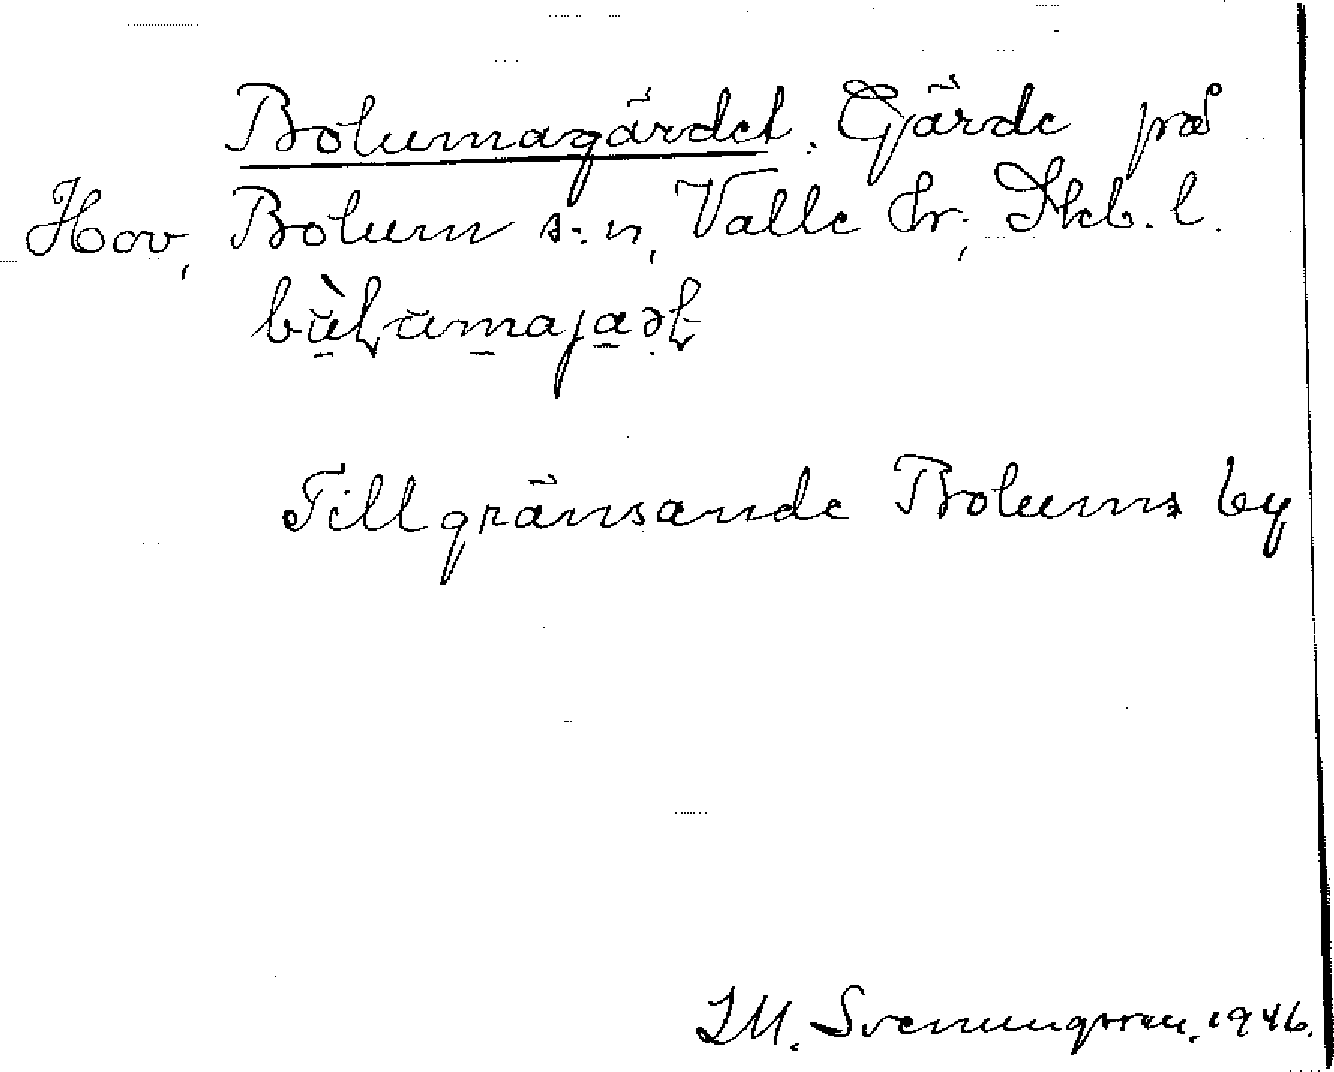 Bolumagärdet. Gärde på
Hov, Bolum s:n, Valle hr; Skb. l.
Tillgränsande Bolums by
I.M. Svenungsson. 1946.